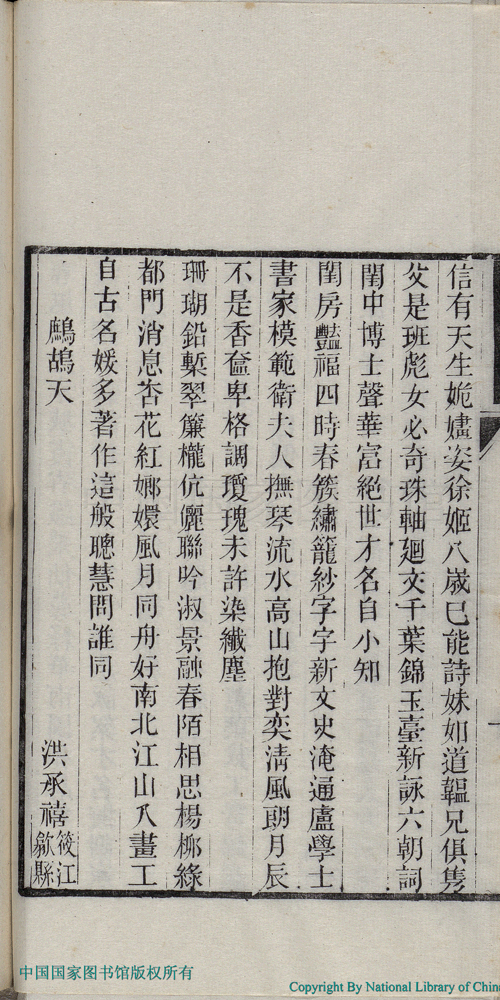 信有天生婉嫿姿徐姬八歲已能詩妹如道韞兄俱雋
父是班彪女必奇珠軸廻文千葉錦玉臺新詠六朝詞
閨中博士聲華富絕世才名自小知
閨房豔福四時春簇繡籠紗字字新文史淹通盧學士
書家模範衛夫人撫琴流水高山抱對奕淸風朗月辰
不是香奩卑格調瓊瑰未許染纖塵
珊瑚鉛槧翠簾櫳伉儷聯吟淑景融春陌相思楊柳綠
都門消息杏花紅嫏嬛風月同舟好南北江山入畫工
自古名媛多著作這般聰慧問誰同
鷓鴣天
洪承禧
筱江
歙縣
中国国家图书馆版权所有
Copyright By National Library of Chin